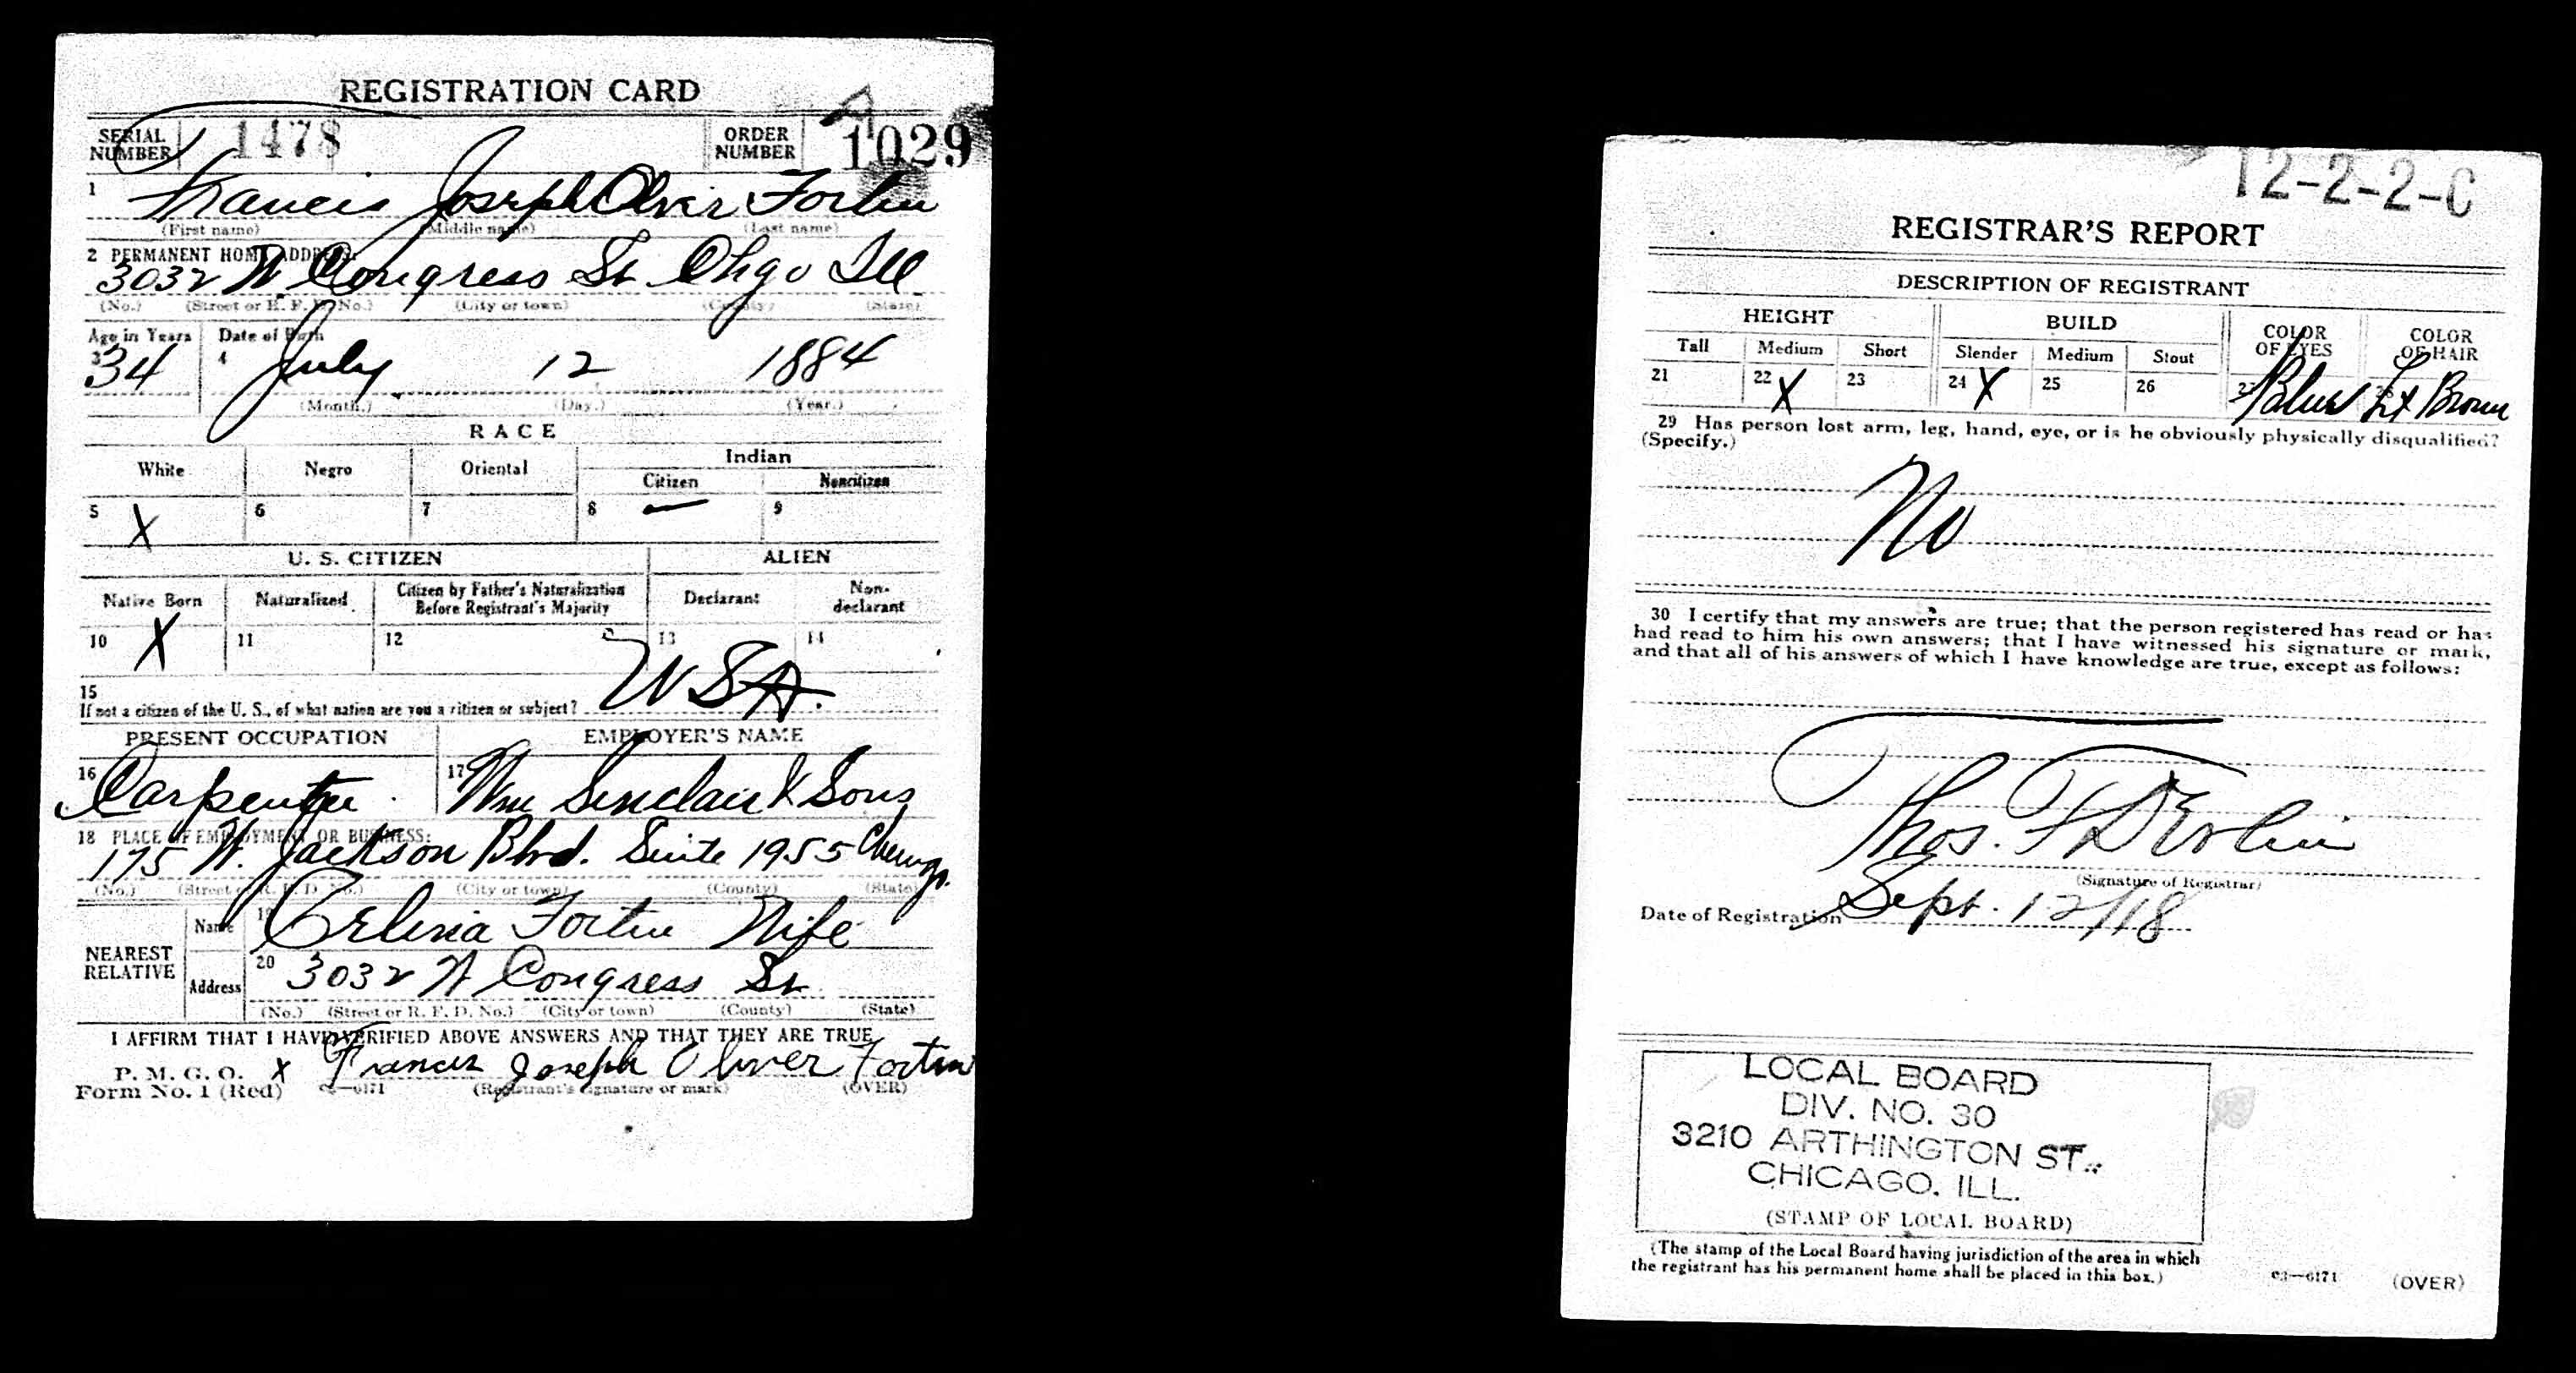 REGISTRATION CARD
SERIAL NUMBER 1478 ORDER NUMBER 1029
1 Francis Joseph Oliver Fortin
(First name) (Middle name) (Last name)
2 PERMANENT HOME ADDRESS:
3032 W Congress St Chgo Ill
(No.) (Street or R. F. D. No.) (City or town) (County) (State)
Age in Years Date of Birth
3 34 4 July 12 1884
(Month.) (Day.) (Year.)
RACE
White Negro Oriental Indian
Citizen Noncitizen
5 X 6 7 8 — 9
U. S. CITIZEN ALIEN
Native Born Naturalized Citizen by Father's Naturalization Before Registrant's Majority Declarant Non-declarant
10 X 11 12 13 14
15
If not a citizen of the U. S., of what nation are you a citizen or subject? USA.
PRESENT OCCUPATION EMPLOYER'S NAME
16 Carpenter 17 Wm Sinclair & Sons
18 PLACE OF EMPLOYMENT OR BUSINESS:
175 W. Jackson Blvd. Suite 1955 Chicago.
(No.) (Street or R. F. D. No.) (City or town) (County) (State)
NEAREST RELATIVE
Name 19 Celina Fortin Wife
Address 20 3032 W Congress St
(No.) (Street or R. F. D. No.) (City or town) (County) (State)
I AFFIRM THAT I HAVE VERIFIED ABOVE ANSWERS AND THAT THEY ARE TRUE
P. M. G. O. X Francis Joseph Oliver Fortin
Form No. 1 (Red) (Registrant's signature or mark) (OVER)
12-2-2-C
REGISTRAR'S REPORT
DESCRIPTION OF REGISTRANT
HEIGHT BUILD COLOR OF EYES COLOR OF HAIR
Tall Medium Short Slender Medium Stout
21 22 X 23 24 X 25 26 27 Blue Lt Brown
29 Has person lost arm, leg, hand, eye, or is he obviously physically disqualified?
(Specify.)
No
30 I certify that my answers are true; that the person registered has read or has
had read to him his own answers; that I have witnessed his signature or mark,
and that all of his answers of which I have knowledge are true, except as follows:
Thos. F DEvlin
(Signature of Registrar)
Date of Registration Sept. 12/18
LOCAL BOARD
DIV. NO. 30
3210 ARTHINGTON ST.
CHICAGO. ILL.
(STAMP OF LOCAL BOARD)
(The stamp of the Local Board having jurisdiction of the area in which
the registrant has his permanent home shall be placed in this box.)
03—6171 (OVER)